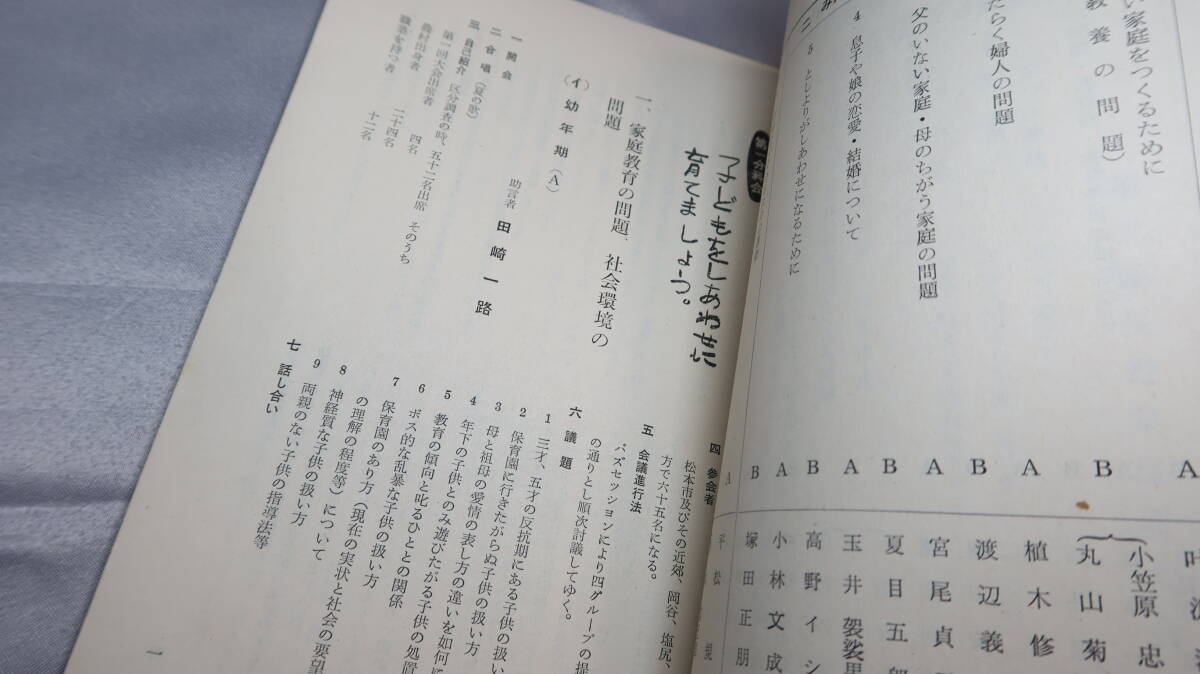 い家庭をつくるために
教養の問題)
たらく婦人の問題
父のいない家庭・母のちがう家庭の問題
4 息子や娘の恋愛・結婚について
5 としよりがしあわせになるために
A
B
A
B
A
B
A
B
A
B
A
小笠原忠
丸山菊
植木修
渡辺義
宮尾貞
夏目五郎
玉井袈裟
高野イシ
小林文成
塚田正朋
平松
第一分科会
子どもをしあわせに
育てましょう。
一、家庭教育の問題、社会環境の
問題
(イ)幼年期(A)
助言者 田崎一路
一 開会
二 合唱 (夏の歌)
三 自己紹介 区分調査の時、五十二名出席 そのうち
第一回大会出席者 四名
農村出身者 二十四名
職業を持つ者 十二名
四 参会者
松本市及びその近郊、岡谷、塩尻、
方で六十五名になる。
五 会議進行法
バズセッションにより四グループの提
の通りとし順次討議してゆく。
六 議題
1 三才、五才の反抗期にある子供の扱い
2 保育園に行きたがらぬ子供の扱い方
3 母と祖母の愛情の表し方の違いを如何に
4 年下の子供とのみ遊びたがる子供の処置
5 教育の傾向と叱るひととの関係
6 ボス的な乱暴な子供の扱い方
7 保育園のあり方(現在の実状と社会の要望
の理解の程度等)について
8 神経質な子供の扱い方
9 両親のない子供の指導法等
七 話し合い
一